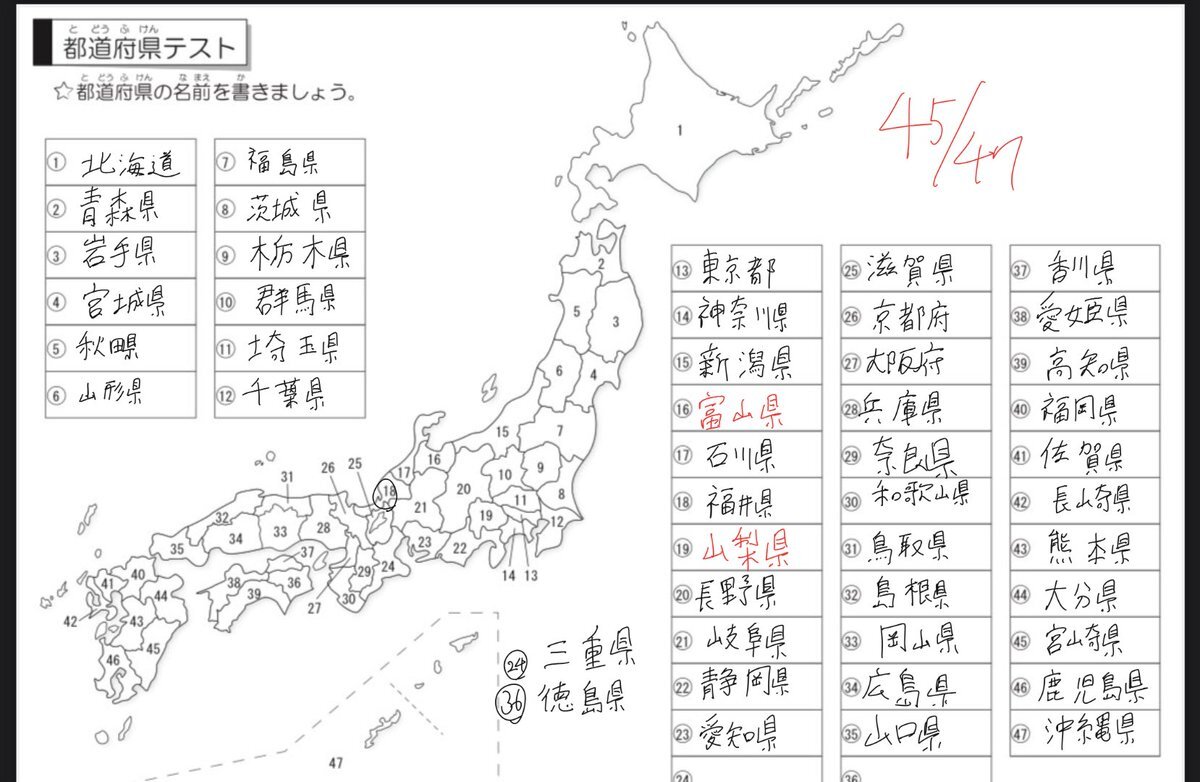 とどうふけん
都道府県テスト
とどうふけん なまえ か
☆都道府県の名前を書きましょう。
45/47
① 北海道
② 青森県
③ 岩手県
④ 宮城県
⑤ 秋田県
⑥ 山形県
⑦ 福島県
⑧ 茨城県
⑨ 栃木県
⑩ 群馬県
⑪ 埼玉県
⑫ 千葉県
⑬ 東京都
⑭ 神奈川県
⑮ 新潟県
⑯ 富山県
⑰ 石川県
⑱ 福井県
⑲ 山梨県
⑳ 長野県
㉑ 岐阜県
㉒ 静岡県
㉓ 愛知県
㉔
㉕ 滋賀県
㉖ 京都府
㉗ 大阪府
㉘ 兵庫県
㉙ 奈良県
㉚ 和歌山県
㉛ 鳥取県
㉜ 島根県
㉝ 岡山県
㉞ 広島県
㉟ 山口県
㊱
㊲ 香川県
㊳ 愛媛県
㊴ 高知県
㊵ 福岡県
㊶ 佐賀県
㊷ 長崎県
㊸ 熊本県
㊹ 大分県
㊺ 宮崎県
㊻ 鹿児島県
㊼ 沖縄県
㉔ 三重県
㊱ 徳島県
1
2
5
3
6
4
15
7
16
17
18
10
9
20
21
11
8
19
12
25
26
31
32
33
28
34
35
23
22
14
13
24
37
29
38
36
39
27
30
40
41
44
42
43
45
46
47